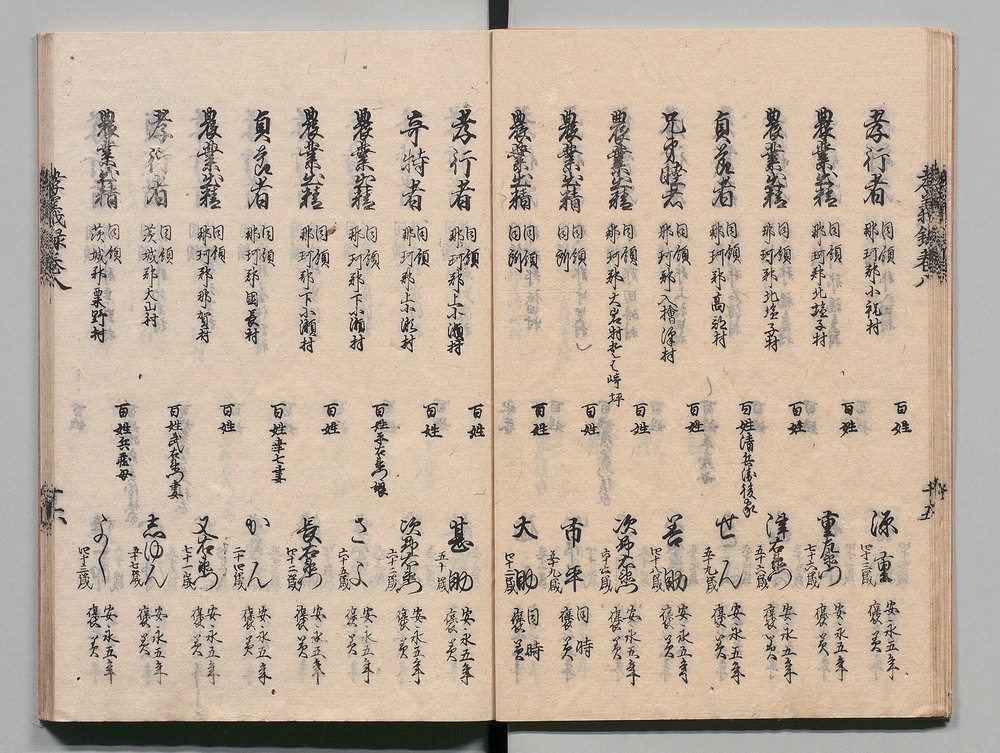 孝義録巻八 十五
孝行者 同領 那珂郡小祝村 百姓 源重 四十三歳 安永五年 褒美
農業出精 同領 那珂郡北塩子村 百姓 重右衛門 七十六歳 安永五年 褒美
農業出精 同領 那珂郡北塩子村 百姓 右衛門 五十六歳 安永五年 褒美
貞節者 同領 那珂郡高部村 百姓清兵衛後家 せん 五十九歳 安永五年 褒美
兄弟睦者 同領 那珂郡入檜澤村 百姓 善助 四十八歳 安永五年 褒美
農業出精 同領 那珂郡大岩村 坪 百姓 次郎右衛門 安永五年 褒美
農業出精 同領 同所 百姓 市平 五十九歳 同時 褒美
農業出精 同領 同所 百姓 大助 四十二歳 同時 褒美
孝行者 同領 那珂郡上小瀬村 百姓 甚助 五十歳 安永五年 褒美
奇特者 同領 那珂郡上小瀬村 百姓 次郎右衛門 安永五年 褒美
農業出精 同領 那珂郡下小瀬村 百姓 右衛門娘 さよ 六十五歳 安永五年 褒美
農業出精 同領 那珂郡下小瀬村 百姓 長右衛門 四十三歳 安永五年 褒美
貞節者 同領 那珂郡国長村 百姓幸七妻 かん 二十四歳 安永五年 褒美
農業出精 同領 那珂郡那賀村 百姓 又右衛門 七十一歳 安永五年 褒美
孝行者 同領 茨城郡大山村 百姓武右衛門妻 しゆん 五十七歳 安永五年 褒美
農業出精 同領 茨城郡粟野村 百姓兵蔵母 よし 四十三歳 安永五年 褒美
孝義録巻八 十六